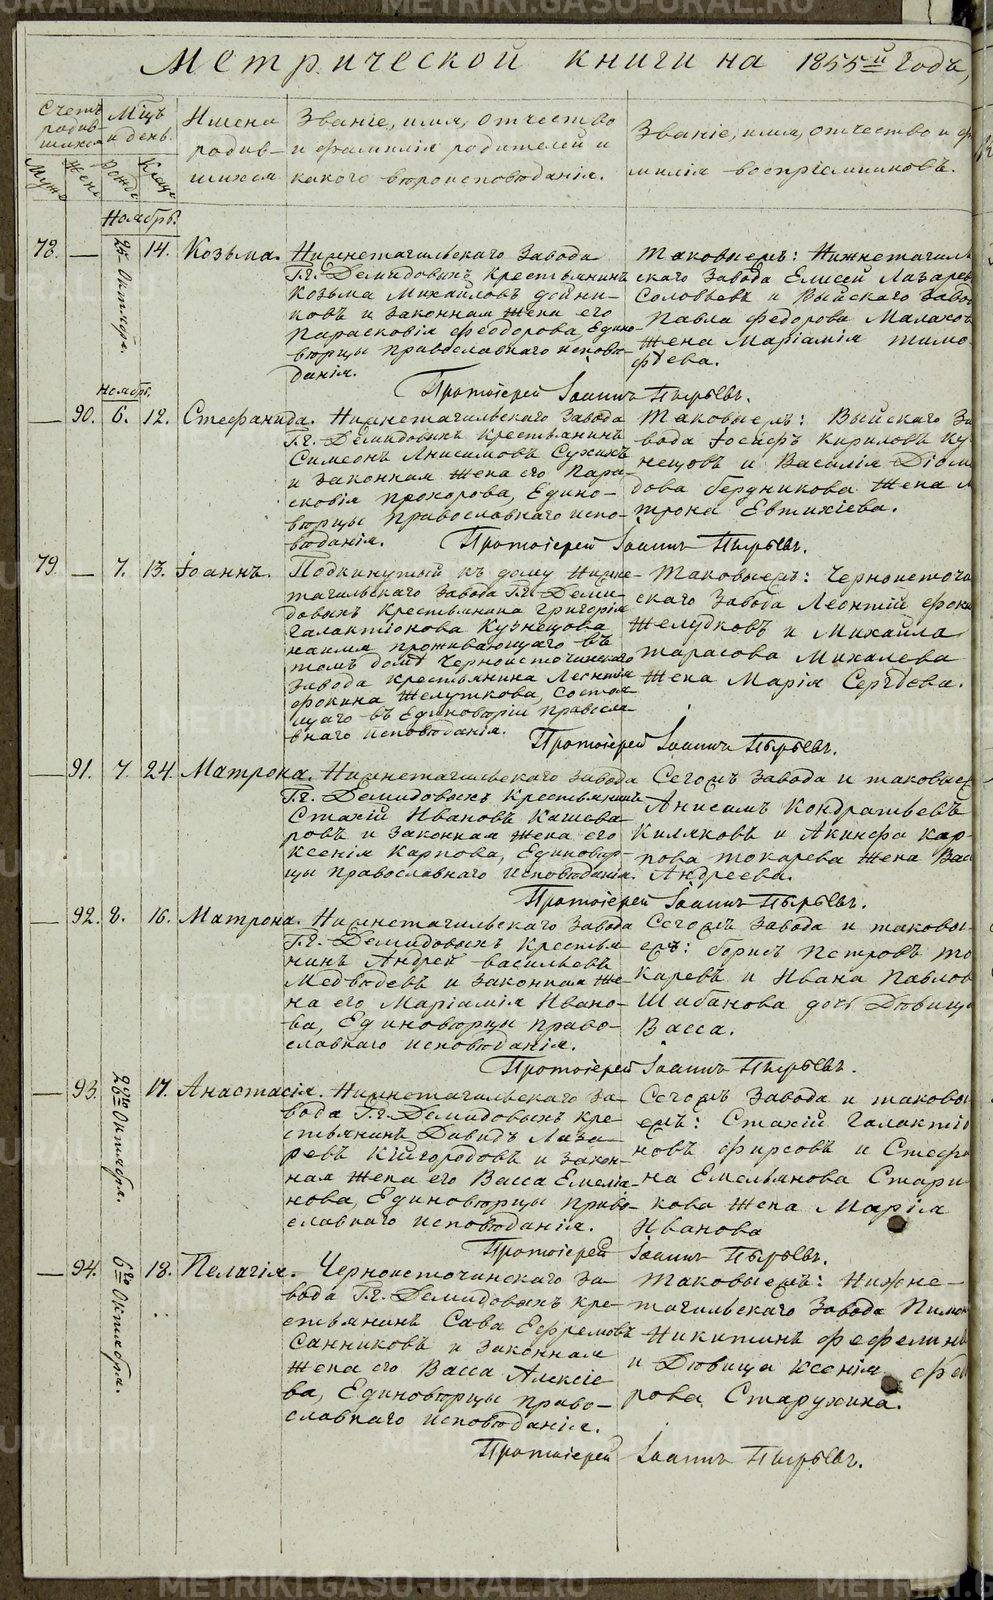 Метрической книги на 1855й годъ,
Счетъ родив-шихся
Муж Жен
Мц̃ъ и день.
Рожд Крещ
Имена родив-шихся
Званіе, имя, отчество и фамилія родителей и какого вѣроисповѣданія.
Званіе, имя, отчество и фа
милія воспріемниковъ.
Ноябрь.
78. — 25 Октября. 14. Козьма.
Нижнетагильскаго Завода
Г.г. Демидовыхъ крестьянинъ
Козьма Михайловъ
и законная жена его
Парасковія Феодорова, Едино-
вѣрцы православнаго исповѣ-
данія.
Таковыемъ: Нижнетагиль
скаго Завода Елисей Лазарев
Соловьевъ и Выйскаго завод
Павла Федорова Малахов
жена Маріамія Тимо-
фѣева.
Протоіерей Іоаннъ Пырьевъ.
Ноябр.
— 90. 6. 12. Стефанида.
Нижнетагильскаго Завода
Г.г. Демидовыхъ крестьянинъ
Симеонъ Анисимовъ Сухихъ
и законная жена его Пара-
сковія Прохорова, Едино-
вѣрцы Православнаго испо-
вѣданія.
Таковыемъ: Выйскаго За
вода Іосифъ Кириловъ Ку
нецовъ и Василія Діоми
дова Бердникова жена М
трона Евтихіева.
Протоіерей Іоаннъ Пырьевъ.
79. — 7. 13. Іоаннъ.
Подкинутый къ дому Нижне-
тагильскаго Завода Г.г. Деми-
довыхъ крестьянина Григорія
Галактіонова Кузнецова
наимя проживающаго въ
томъ домѣ Черноисточинскаго
завода крестьянина Леонтія
Фокина Желуткова, состоя
щаго въ Единовѣріи правосла-
внаго исповѣданія.
Таковыемъ: Черноисточи
скаго Завода Леонтій Фоки
Желудковъ и Михаила
Тарасова Михалева
жена Марія Сергѣева.
Протоіерей Іоаннъ Пырьевъ.
— 91. 7. 24. Матрона.
Нижнетагильскаго завода
Г.г. Демидовыхъ крестьянинъ
Стахій Ивановъ Кашева-
ровъ и законная жена его
Ксенія Карпова, Единовѣр-
цы православнаго исповѣданія.
Сегожъ завода и таковые
Анисимъ Кондратьевъ
Киляковъ и Акинфа Кар-
пова Токарева жена Вас
Андреева.
Протоіерей Іоаннъ Пырьевъ.
— 92. 8. 16. Матрона.
Нижнетагильскаго Завода
Г.г. Демидовыхъ крестья-
нинъ Андрей Васильевъ
Медвѣдевъ и законная же-
на его Маріамія Ивано-
ва, Единовѣрцы право-
славнаго исповѣданія.
Сегожъ Завода и таковы-
ежъ: Борисъ Петровъ То
каревъ и Ивана Павлов
Шабанова дочь Дѣвица
Васса.
Протоіерей Іоаннъ Пырьевъ.
— 93. 26го Октября. 17. Анастасія.
Нижнетагильскаго За-
вода Г.г. Демидовыхъ кре-
стьянинъ Давидъ Лаза-
ревъ Кайгородовъ и закон-
ная жена его Васса Емелія-
нова, Единовѣрцы право-
славнаго исповѣданія.
Сегожъ Завода и таковы
ежъ: Стахій Галактіо
новъ Фирсовъ и Стефа
на Емельянова Стари
кова жена Марія
Иванова
Протоіерей Іоаннъ Пырьевъ.
— 94. 6го Октября. 18. Пелагія.
Черноисточинскаго За-
вода Г.г. Демидовыхъ кре-
стьянинъ Сава Ефремовъ
Санниковъ и законная
жена его Васса Алексіе
ва, Единовѣрцы право-
славнаго исповѣданія.
Таковыежъ: Нижне-
тагильскаго Завода Пимон
Никитинъ Фефелинъ
и Дѣвица Ксенія Фео
рова Старухина.
Протоіерей Іоаннъ Пырьевъ.
METRIKI.GASO-URAL.RU